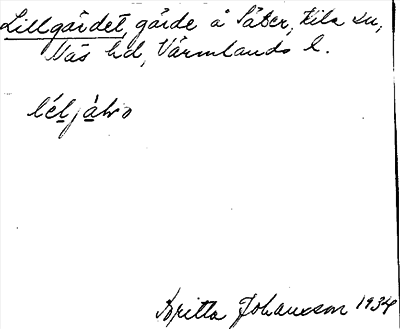 Lillgärdet, gärde å Säter, Kila sn,
Näs hd, Värmlands l.
léljàlvo
Britta Johansson 1934